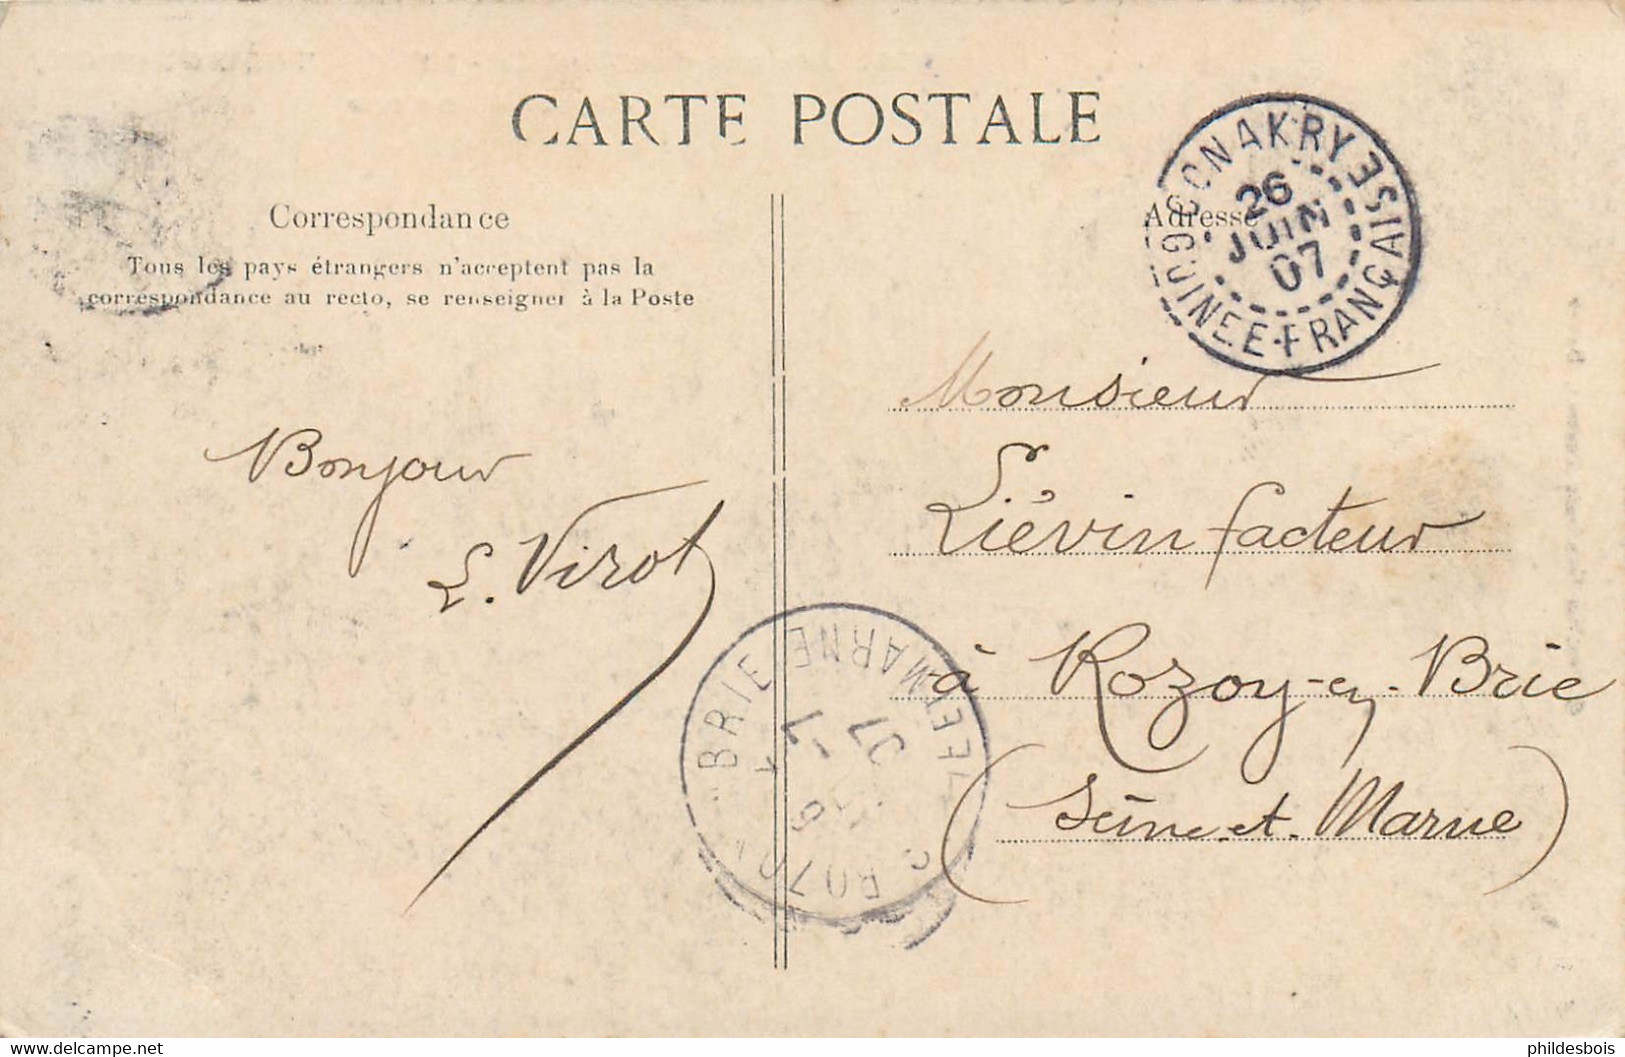 CARTE POSTALE
Correspondance
Tous les pays étrangers n'acceptent pas la
correspondance au recto, se renseigner à la Poste
Bonjour
L. Virot
Adresse
CNAKRY
26
JUIN
07
GUINEE FRANÇAISE
Monsieur
Liévin facteur
à Rozoy-en-Brie
(Seine-et-Marne)
BRIE
ET MARNE
07
https://www.delcampe.net
phildesbois